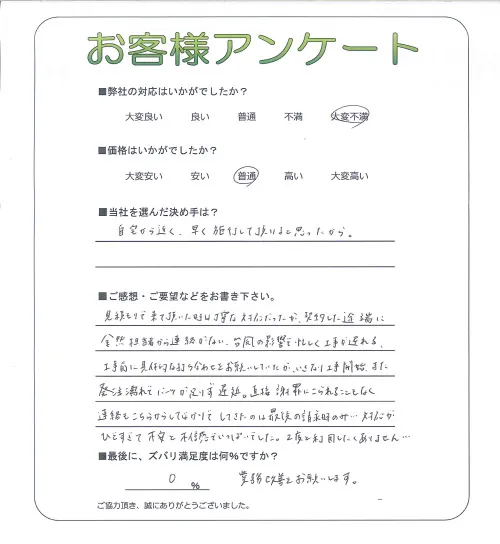 お客様アンケート
■弊社の対応はいかがでしたか？
大変良い 良い 普通 不満 大変不満
■価格はいかがでしたか？
大変安い 安い 普通 高い 大変高い
■当社を選んだ決め手は？
自宅から近く、早く施行して頂けると思ったから。
■ご感想・ご要望などをお書き下さい。
見積もりで来て頂いた時は丁寧な対応だったが、契約した途端に
全然担当者から連絡がない、台風の影響で忙しく工事が遅れる、
工事前に具体的な打ち合わせをお願いしていたが、いきなり工事開始、また
発注漏れでパーツが足りず遅延。直接謝罪に こられることもなく
連絡もこちらからしてばかりで してきたのは最後の請求時のみ…対応が
ひどすぎて不安と不信感でいっぱいでした。2度と利用したくありません…
■最後に、ズバリ満足度は何％ですか？
0 %
業務改善をお願いします。
ご協力頂き、誠にありがとうございました。